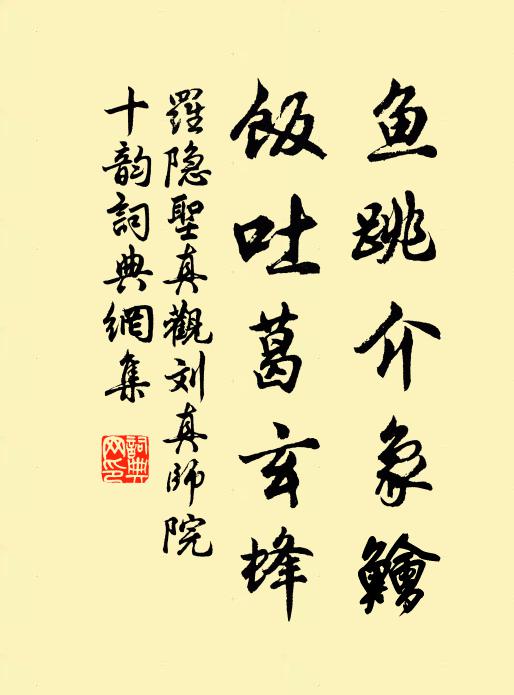 鱼跳介象鱠
飯吐葛玄蜂
羅隐聖真觀刘真師院
十韵詞典網集
詞典网印